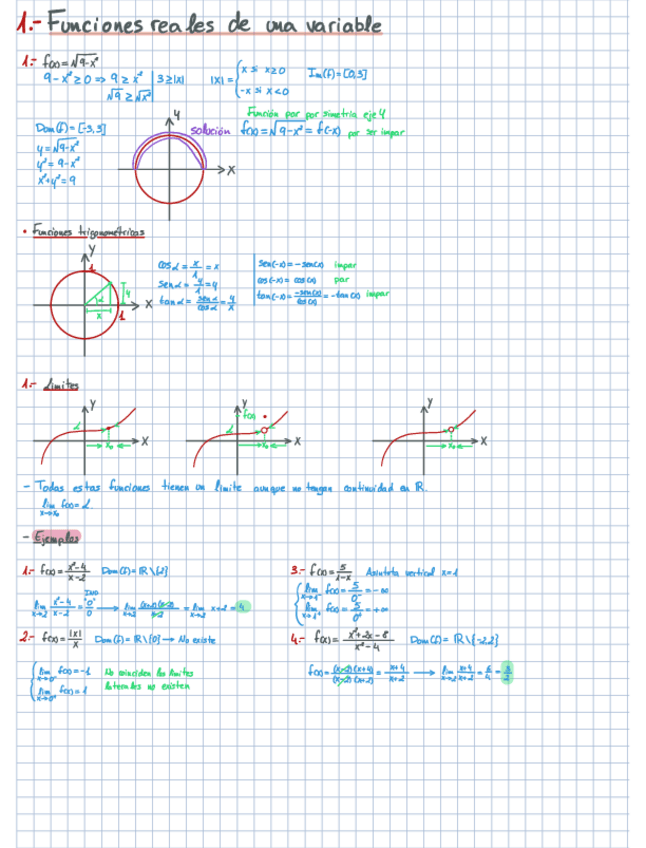 1.- Funciones reales de una variable
1.- f(x)=√9-x²
9-x²≥0 => 9≥x² | 3≥|x|
√9≥√x²
|x|= { x si x≥0
-x si x<0
Im(f)=[0,3]
Función par por simetría eje Y
Dom(f)=[-3,3]
y=√9-x²
y²=9-x²
x²+y²=9
Y
solución
X
f(x)=√9-x²=f(-x) por ser impar
• Funciones trigonométricas
Y
1
α
y
x
X
1
cosα=x/1=x
senα=y/1=y
tanα=senα/cosα=y/x
sen(-x)=-sen(x) impar
cos(-x)=cos(x) par
tan(-x)=-sen(x)/cos(x)=-tan(x) impar
1.- Límites
Y
L
x₀
X
Y
f(x₀)
L
x₀
X
Y
x₀
X
- Todas estas funciones tienen un límite aunque no tengan continuidad en ℝ.
lim x→x₀ f(x)=L
- Ejemplos
1.- f(x)=x²-4/x-2 Dom(f)=ℝ\{2}
lim x→2 x²-4/x-2="0"/0 IND → lim x→2 (x+2)(x-2)/x-2 = lim x→2 x+2=4
2.- f(x)=|x|/x Dom(f)=ℝ\{0} → No existe
{ lim x→0⁻ f(x)=-1
lim x→0⁺ f(x)=1
No coinciden los límites
laterales no existen
3.- f(x)=5/1-x Asíntota vertical x=1
{ lim x→1⁻ f(x)=5/0⁻=-∞
lim x→1⁺ f(x)=5/0⁺=+∞
4.- f(x)=x²+2x-8/x²-4 Dom(f)=ℝ\{-2,2}
f(x)=(x-2)(x+4)/(x-2)(x+2)=x+4/x+2 → lim x→2 x+4/x+2=6/4=3/2